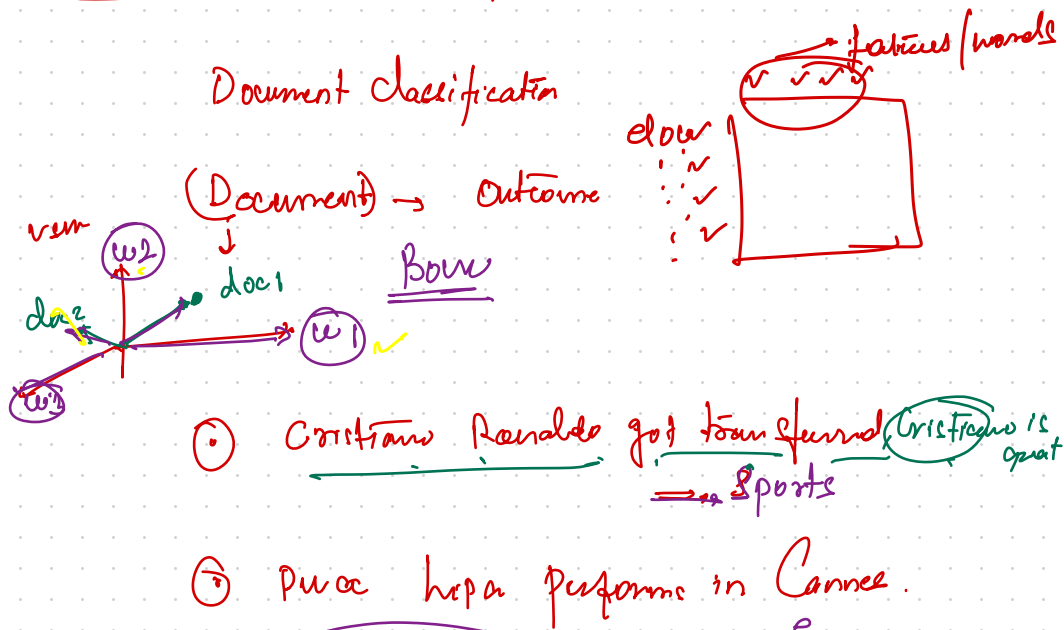 features/words
Document Classification
docs
(Document) → Outcome
vsm
w2
BOW
doc1
doc2
w1
w3
Cristiano Ronaldo got transferred Cristiano is
great
→ Sports
Dua Lipa performs in Cannes.